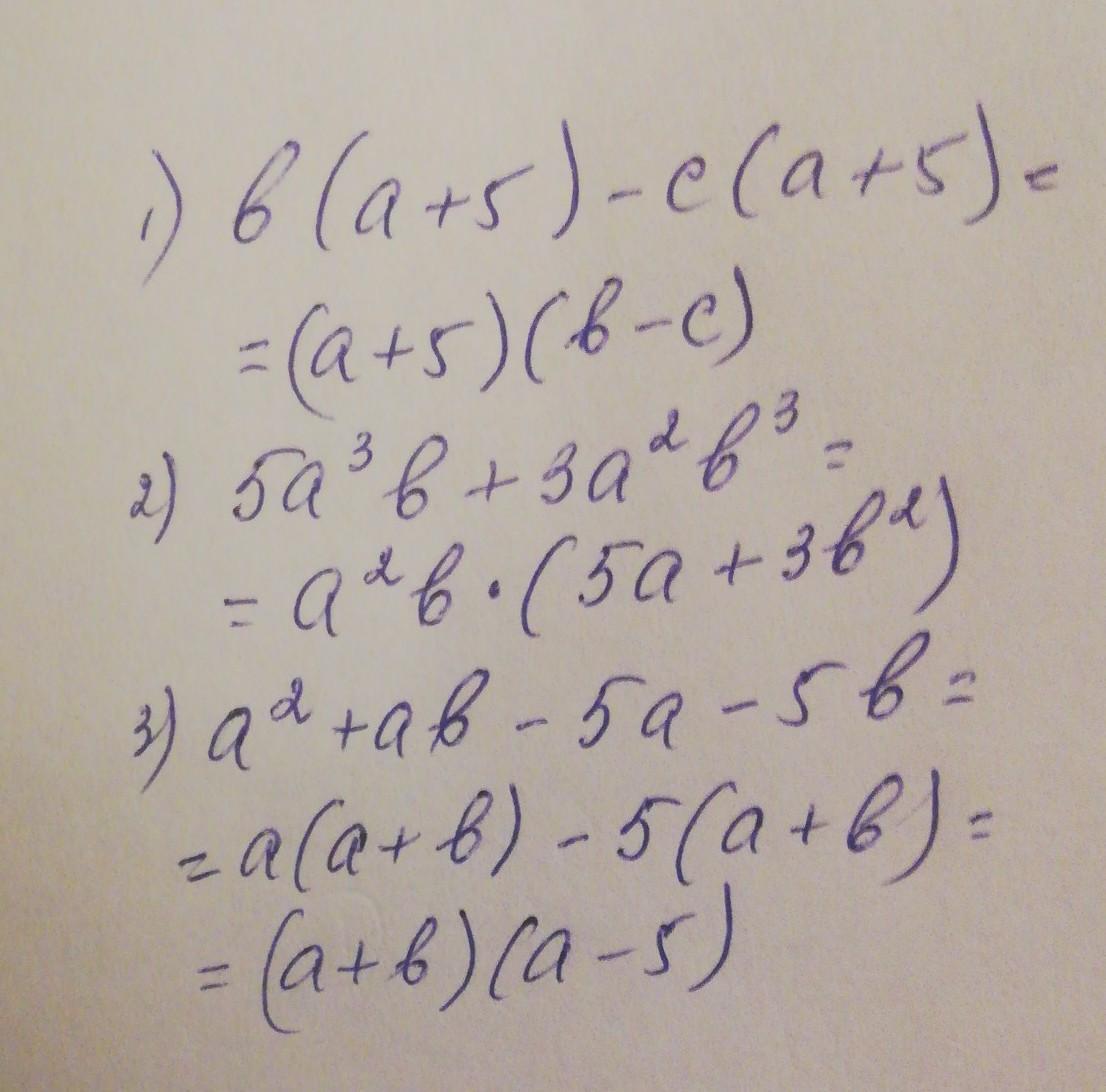 1) b(a+5)-c(a+5)=
=(a+5)(b-c)
2) 5a³b+3a²b³=
=a²b·(5a+3b²)
3) a²+ab-5a-5b=
=a(a+b)-5(a+b)=
=(a+b)(a-5)